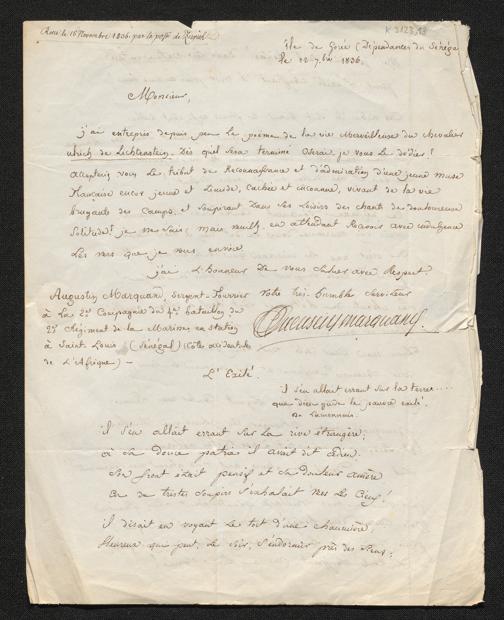 Reçu le 16 Novembre 1836. par la poste de Zurich
K 3123,13
île de Gorée (Dépendances du Sénégal
le 12 7.bre 1836.
Monsieur,
j'ai entrepris depuis peu le poème de la vie merveilleuse du chevalier
ulrich de Lichtenstein. Dès qu'il sera terminé oserai je vous le dédier!
accepterez vous le tribut de Reconnaissance et d'admiration d'une jeune muse
française encor jeune et timide, cachée et inconnue, vivant de la vie
bruyante des Camps, et soupirant dans ses Loisirs des chants de douloureuse
Solitude! je ne sais, mais veuillez en attendant Recevoir avec indulgence
Les vers que je vous envoie.
j'ai L'honneur De vous Saluer avec Respect
Votre très-humble Serviteur
Augustin Marquand
Augustin Marquand, Sergent-Fourrier
à La 2e Compagnie du 4e bataillon du
2e Régiment de la Marine, en station
à Saint-Louis (Sénégal) (Côte occidentale
de L'Afrique) —
L'Exilé.
il s'en allait errant sur la terre....
que dieu guide le pauvre exilé.
De Lamennais.
il s'en allait errant sur La rive étrangère;
à sa douce patrie il avait dit adieu.
Son front était pensif et sa douleur amère
En de tristes soupirs s'exhalait vers les Cieux!
il disait en voyant Le toit d'une chaumière,
Heureux qui peut, Le Soir, s'endormir près des Siens;